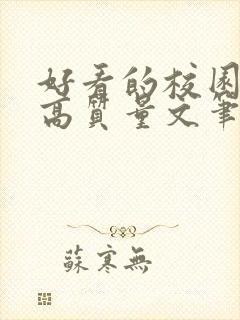 好看的校园
高質量文筆
蘇寒無